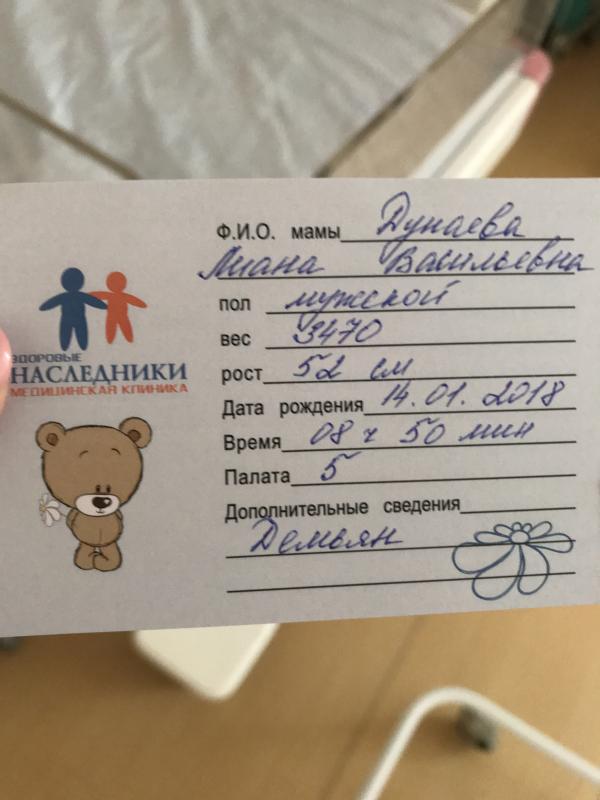 Ф.И.О. мамы Дунаева
Лиана Васильевна
пол мужской
вес 3470
рост 52 см
Дата рождения 14.01.2018
Время 08 ч 50 мин
Палата 5
Дополнительные сведения
Демьян
ЗДОРОВЫЕ
НАСЛЕДНИКИ
МЕДИЦИНСКАЯ КЛИНИКА